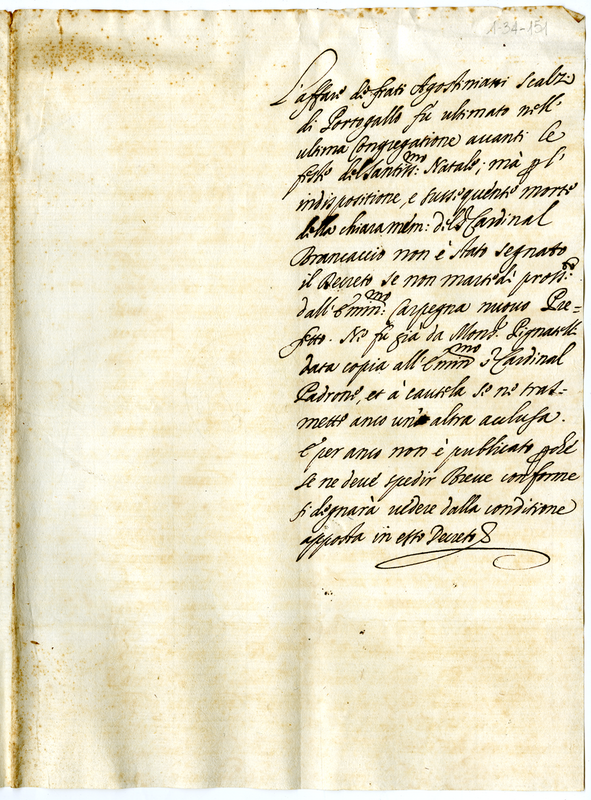 1-34-151
L'affare de frati Agostiniani Scalzi
di Portogallo fù ultimato nell'
ultima Congregatione auanti le
feste del Santiss:mo Natale; mà l'
indispositione, e susseguente morte
della chiara mem: del Cardinal
Brancaccio non è stato segnato
il Decreto se non martedì pross:o
dall'Emin:mo Carpegna nuouo Pre=
fetto. Ne fù già da Mons.r Pignatelli
data copia all'Emin:mo Sr Cardinal
Padrone, et à cautela se ne tras=
mette anco un'altra acclusa.
E per anco non è publicato
se ne deue spedir Breue conforme
si degnarà uedere dalla conditione
apposta in esso Decreto